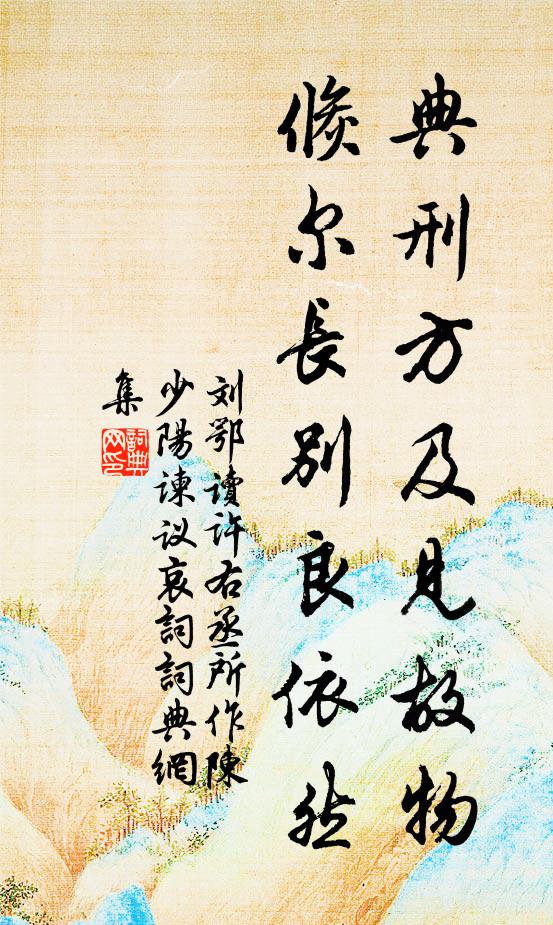 典刑方及見故物
倐尔長别良依然
刘鄂讀許右丞所作陳
少陽諫议哀詞詞典網
集
詞典网印